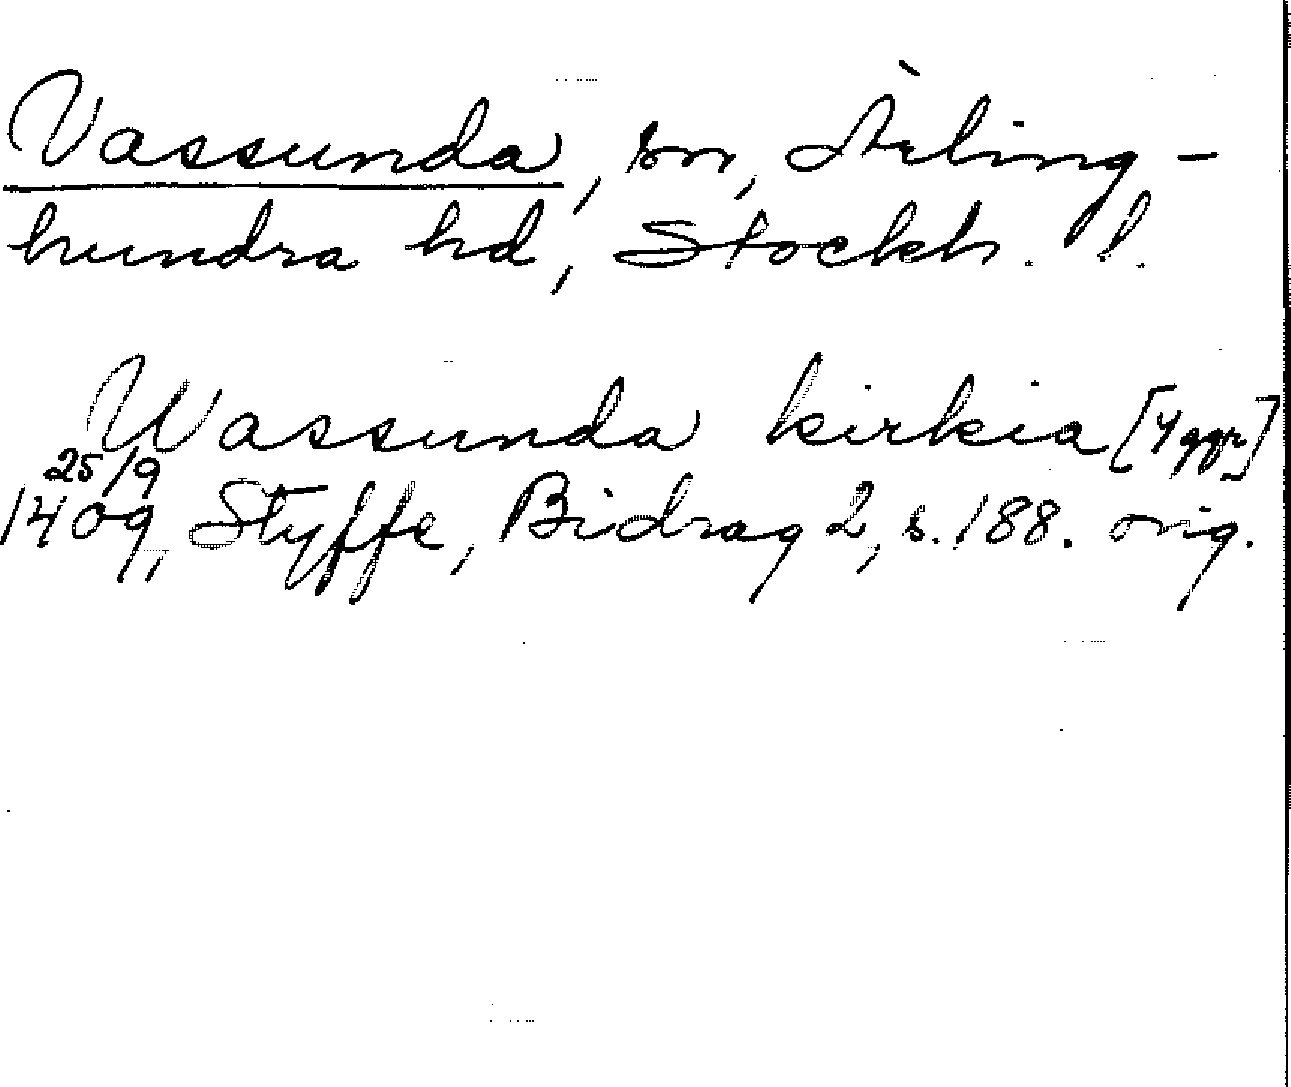 Vassunda, sn, Ärling-
hundra hd, Stockh. l.
Wassunda kirkia [4 ggr]
25/9
1409, Styffe, Bidrag 2, s. 188. orig.